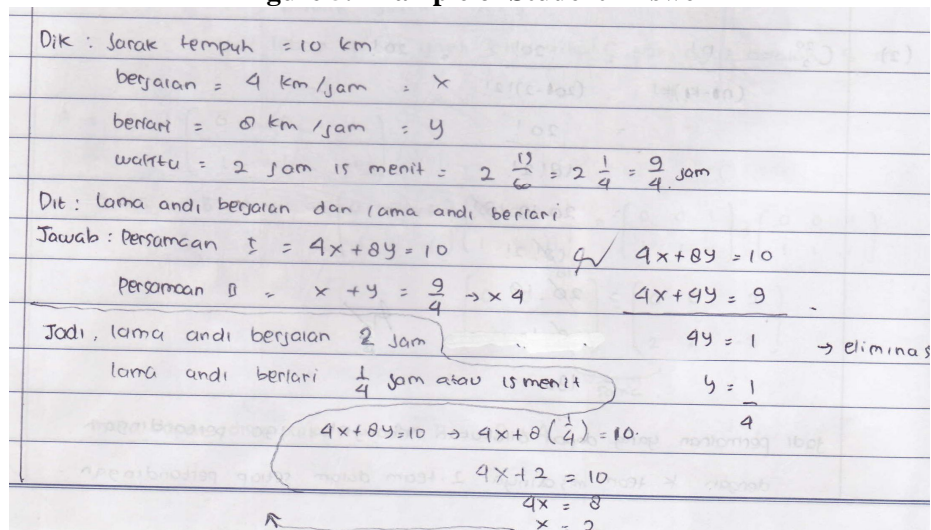 Dik : Jarak tempuh = 10 km
berjalan = 4 km/jam = x
berlari = 8 km/jam = y
waktu = 2 jam 15 menit = 2 15/60 = 2 1/4 = 9/4 jam
Dit : Lama andi berjalan dan lama andi berlari
Jawab : Persamaan I = 4x + 8y = 10
4x + 8y = 10
Persamaan II = x + y = 9/4 → x 4
4x + 4y = 9 -
Jadi, lama andi berjalan 2 jam
4y = 1 → eliminas
lama andi berlari 1/4 jam atau 15 menit
y = 1/4
4x + 8y = 10 → 4x + 8(1/4) = 10.
4x + 2 = 10
4x = 8
x = 2